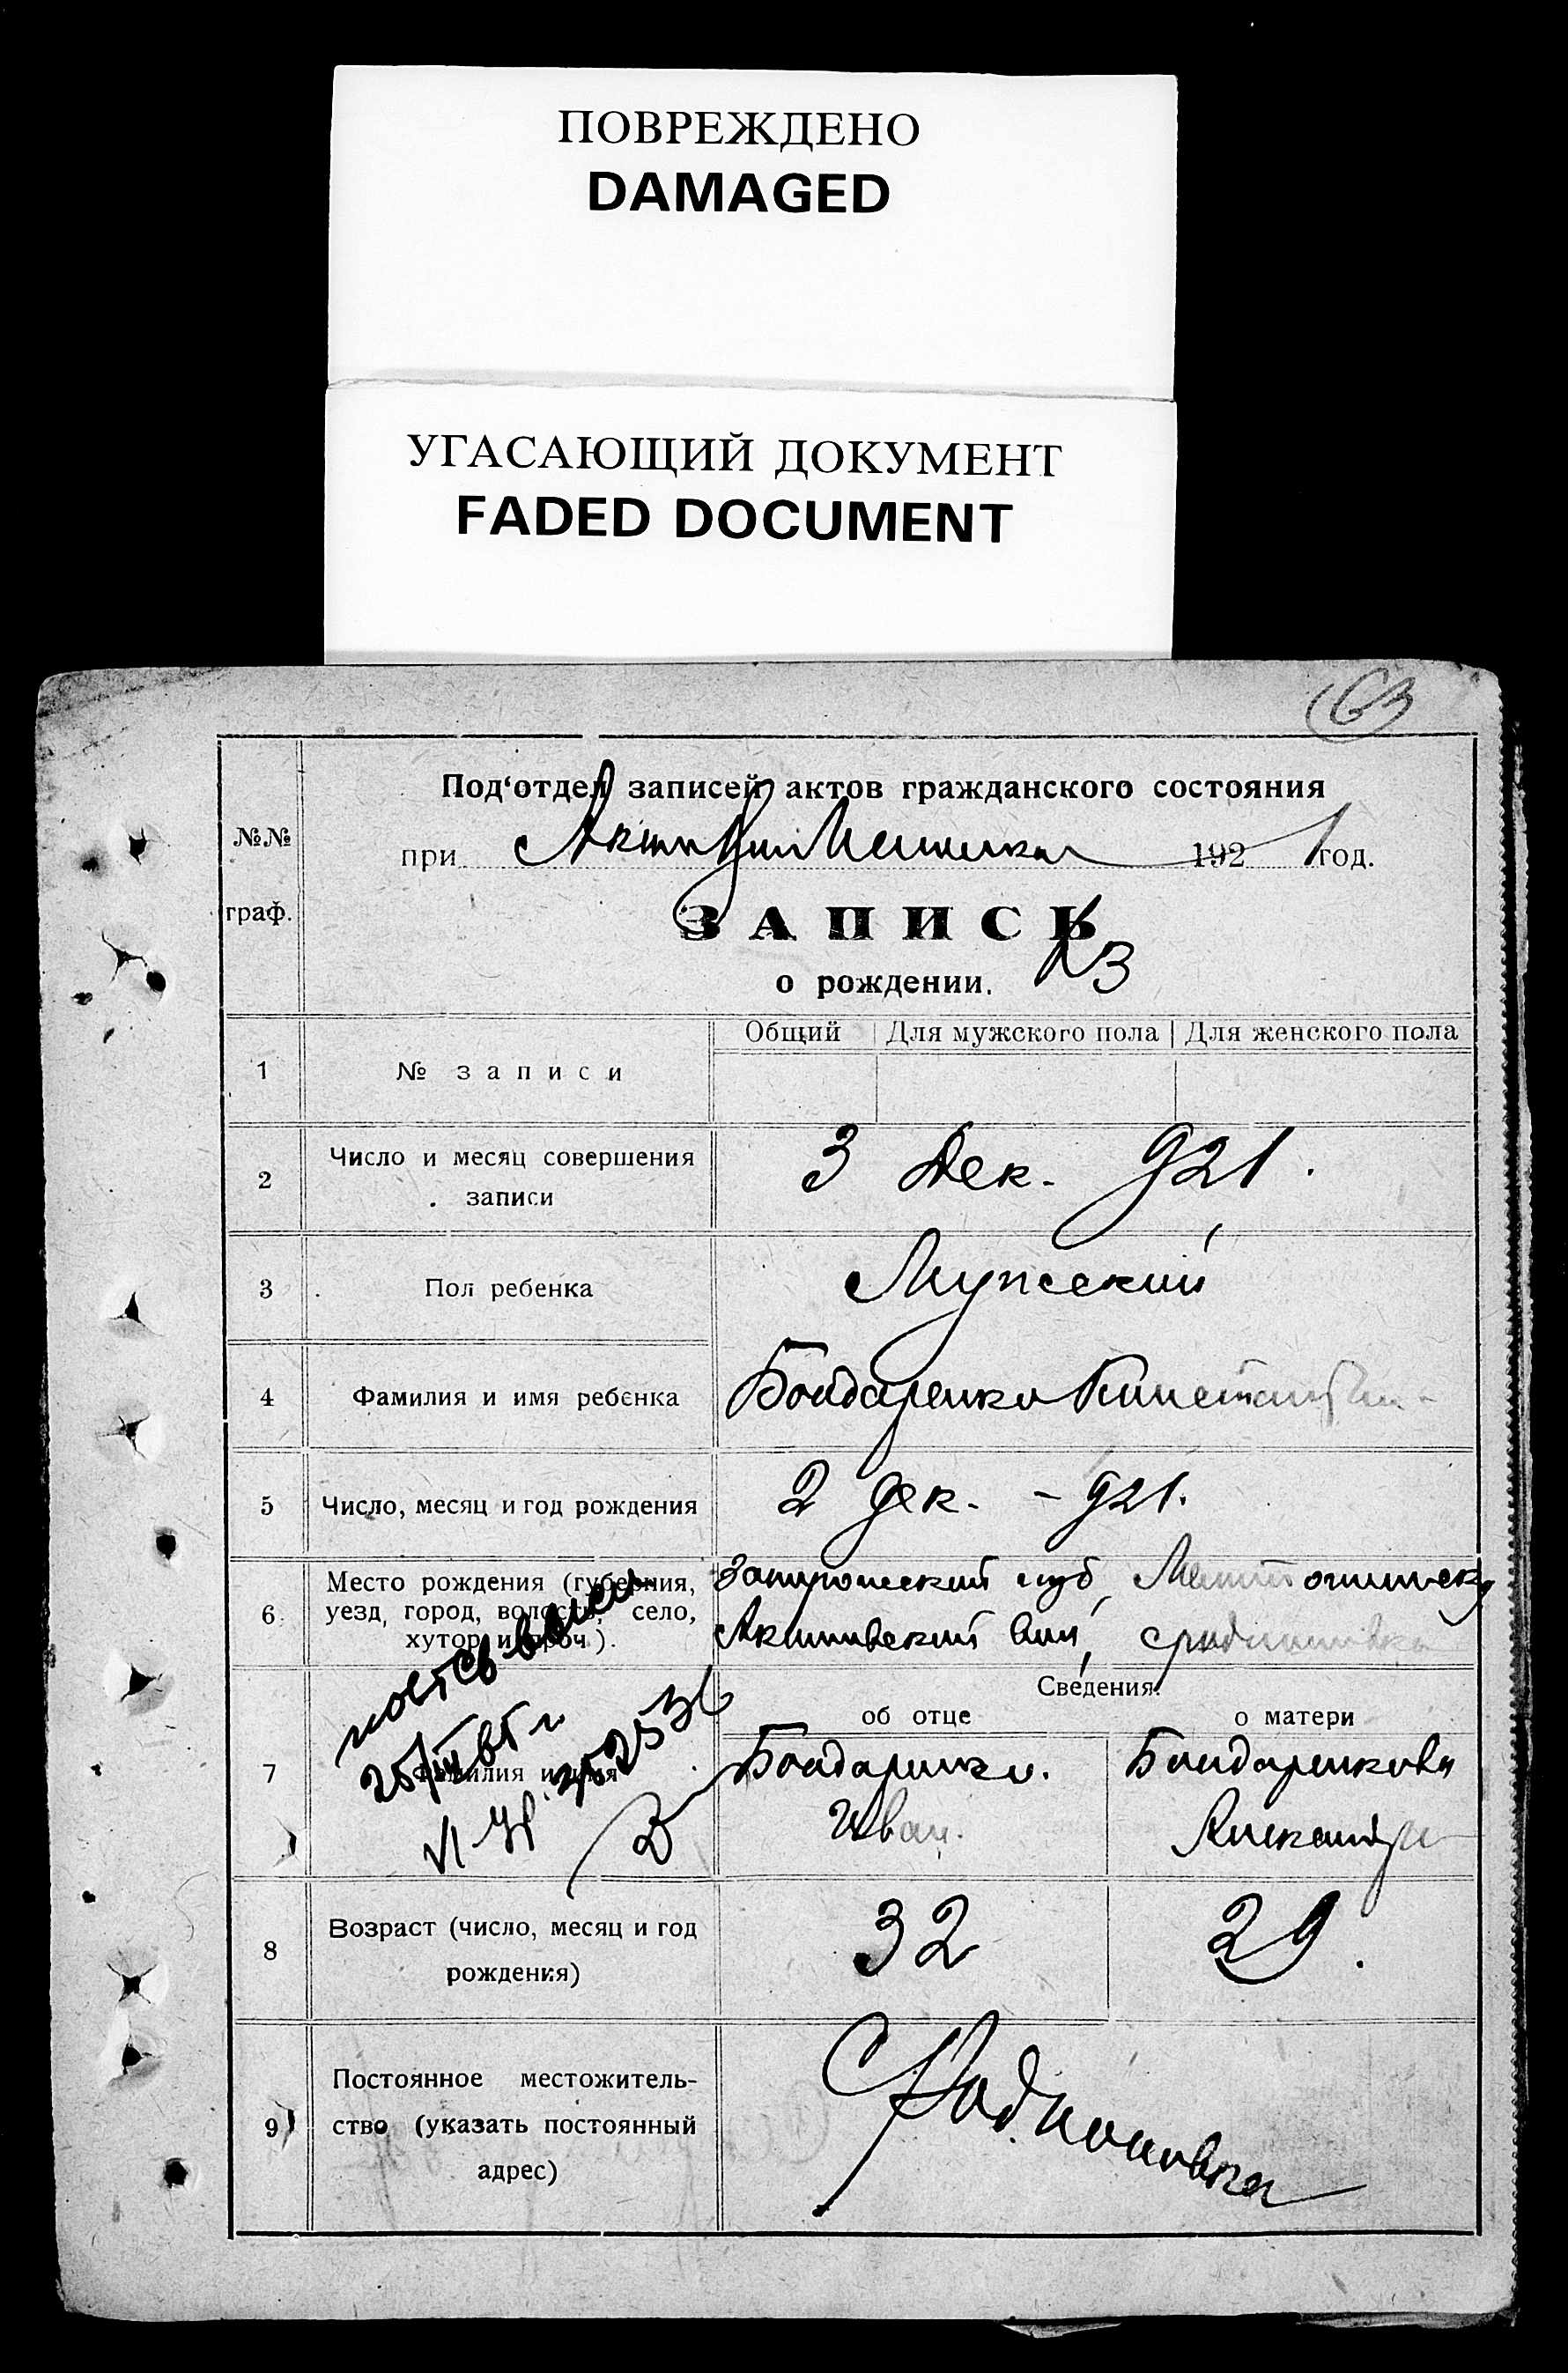 ПОВРЕЖДЕНО
DAMAGED
УГАСАЮЩИЙ ДОКУМЕНТ
FADED DOCUMENT
63
Под‘отдел записей актов гражданского состояния
№№
при 1921 год.
граф.
ЗАПИСЬ
о рождении. 3
Общий Для мужского пола Для женского пола
1 № записи
2 Число и месяц совершения записи
3 Дек. 921.
3 Пол ребенка Мужский
4 Фамилия и имя ребенка Бондаренко Константин
5 Число, месяц и год рождения 2 дек. - 921.
6 Место рождения (губерния,
уезд, город, волость, село,
хутор и проч.).
губ,
Сведения:
об отце о матери
7 Фамилия и имя
Бондаренко. Бондаренкова
Иван. Александра
8 Возраст (число, месяц и год
рождения)
32 29.
9 Постоянное местожитель-
ство (указать постоянный
адрес)